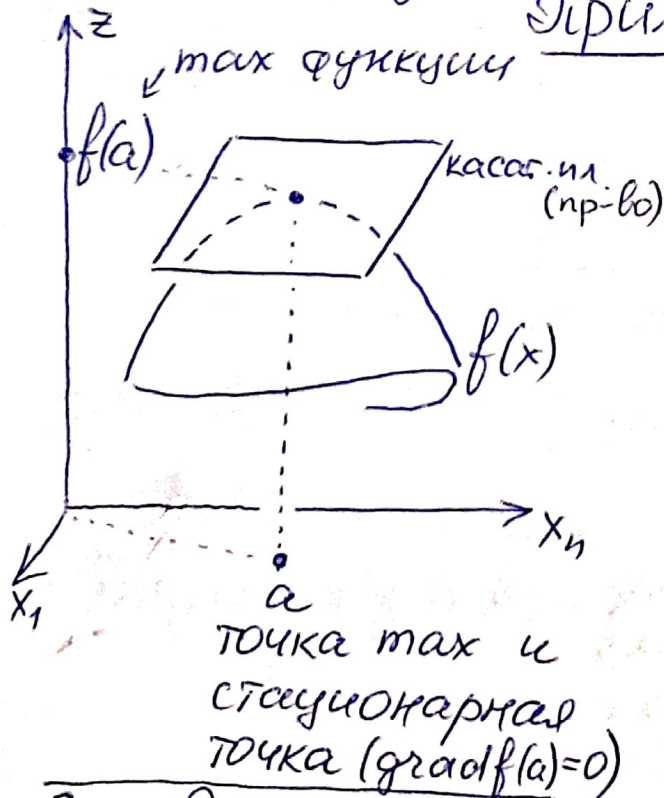 z
max функции
f(a)
касат. пл.
(пр-во)
f(x)
xn
x1
a
точка max и
стационарная
точка (gradf(a)=0)